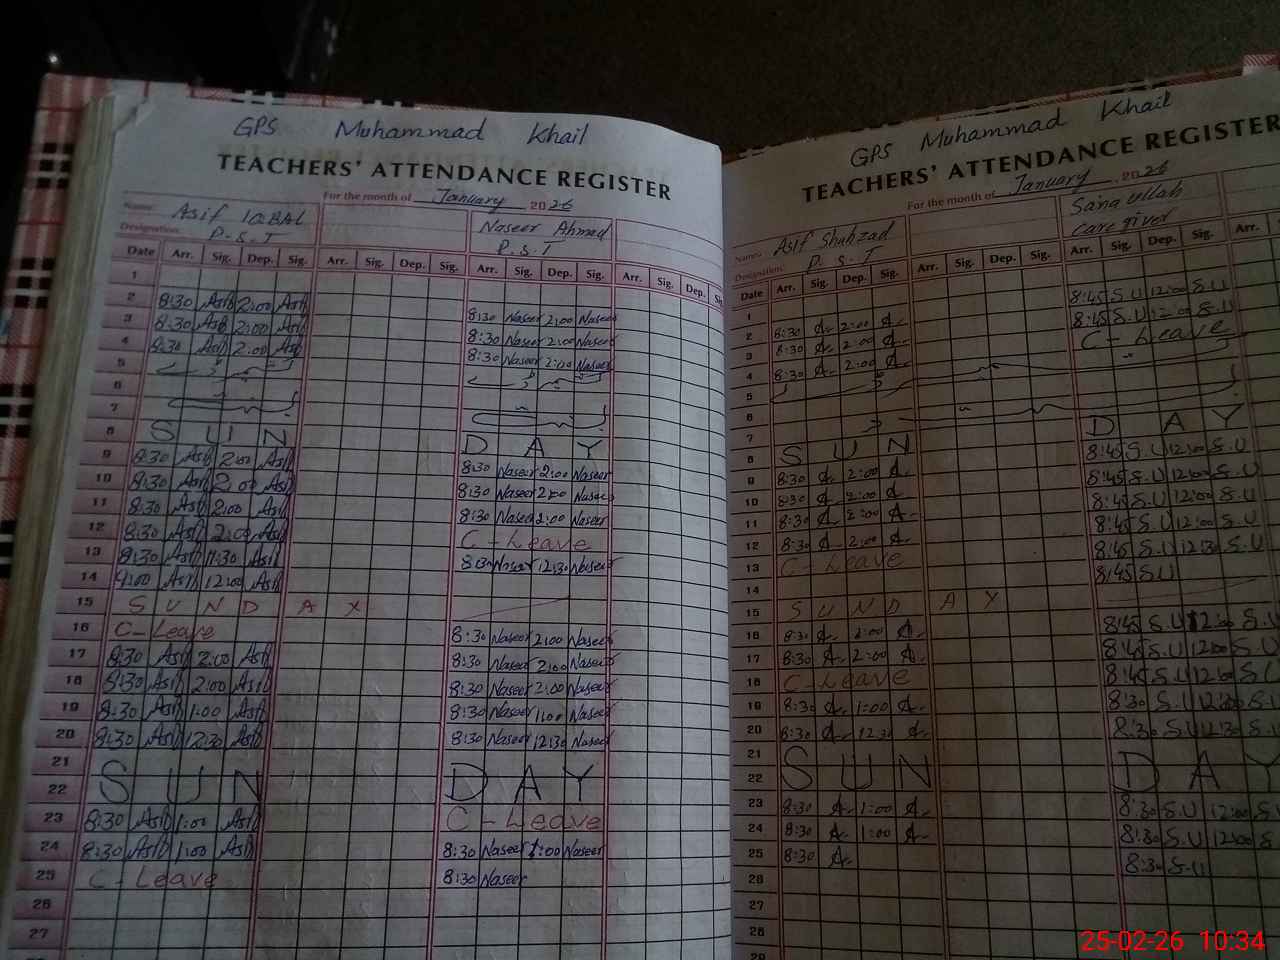 GPS Muhammad Khail
TEACHERS' ATTENDANCE REGISTER
For the month of January 2026
Name: Asif IQBAL
Naseer Ahmad
Designation: P.S.T
P.S.T
Date Arr. Sig. Dep. Sig. Arr. Sig. Dep. Sig. Arr. Sig. Dep. Sig. Arr. Sig. Dep.
1
2 8:30 Asif 2:00 Asif 8:30 Naseer 2:00 Naseer
3 8:30 Asif 2:00 Asif 8:30 Naseer 2:00 Naseer
4 8:30 Asif 2:00 Asif 8:30 Naseer 2:00 Naseer
5
6
7
8 S U N D A Y
9 8:30 Asif 2:00 Asif 8:30 Naseer 2:00 Naseer
10 8:30 Asif 2:00 Asif 8:30 Naseer 2:00 Naseer
11 8:30 Asif 2:00 Asif 8:30 Naseer 2:00 Naseer
12 8:30 Asif 2:00 Asif C-Leave
13 8:30 Asif 11:30 Asif 8:30 Naseer 12:30 Naseer
14 9:00 Asif 12:00 Asif
15 S U N D A Y
16 C-Leave 8:30 Naseer 2:00 Naseer
17 8:30 Asif 2:00 Asif 8:30 Naseer 2:00 Naseer
18 8:30 Asif 2:00 Asif 8:30 Naseer 2:00 Naseer
19 8:30 Asif 1:00 Asif 8:30 Naseer 1:00 Naseer
20 8:30 Asif 12:30 Asif 8:30 Naseer 12:30 Naseer
21
22 S U N D A Y
23 8:30 Asif 1:00 Asif C-Leave
24 8:30 Asif 1:00 Asif 8:30 Naseer 1:00 Naseer
25 C-Leave 8:30 Naseer
26
27
GPS Muhammad Khail
TEACHERS' ATTENDANCE REGISTER
For the month of January, 2026
Name: Asif Shahzad
Sana ullah
Designation: P.S.T
care giver
Date Arr. Sig. Dep. Sig. Arr. Sig. Dep. Sig. Arr. Sig. Dep. Sig. Arr.
1 8:45 S.U 12:00 S.U
2 8:30 A. 2:00 A. 8:45 S.U 12:00 S.U
3 8:30 A. 2:00 A. C-Leave
4 8:30 A. 2:00 A.
5
6
7 D A Y
8 S U N 8:45 S.U 12:00 S.U
9 8:30 A. 2:00 A. 8:45 S.U 12:00 S.U
10 8:30 A. 2:00 A. 8:45 S.U 12:00 S.U
11 8:30 A. 2:00 A. 8:45 S.U 12:00 S.U
12 8:30 A. 2:00 A. 8:45 S.U 12:30 S.U
13 C-Leave 8:45 S.U
14
15 S U N D A Y
16 8:30 A. 2:00 A. 8:45 S.U 12:00 S.U
17 8:30 A. 2:00 A. 8:45 S.U 12:00 S.U
18 C-Leave 8:45 S.U 12:00 S.U
19 8:30 A. 1:00 A. 8:30 S.U 12:30 S.U
20 8:30 A. 12:30 A. 8:30 S.U 12:30 S.U
21
22 S U N D A Y
23 8:30 A. 1:00 A. 8:30 S.U 12:00 S.U
24 8:30 A. 1:00 A. 8:30 S.U 12:00 S.U
25 8:30 A. 8:30 S.U
26
27
28
29
25-02-26 10:34